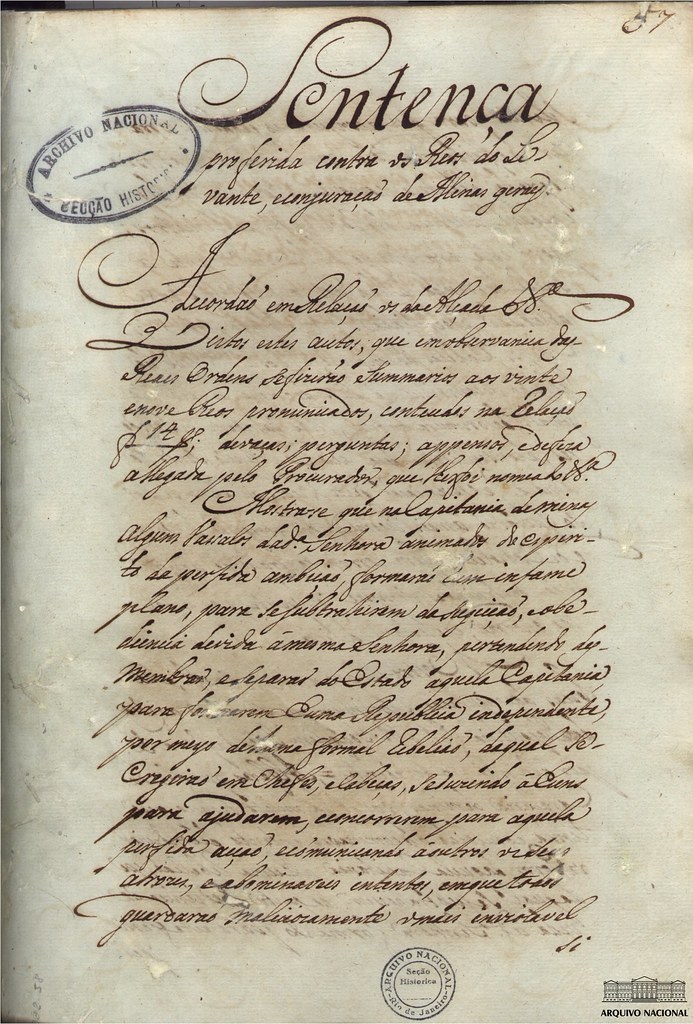 57
Sentença
proferida contra os Reos do Le-
vante, econjuração de Minas geraes.
ARCHIVO NACIONAL
SECÇÃO HISTORICA
Accordaõ em Relação os da Alçada &ª
Vistos estes autos, que em observancia das
Reaes Ordens se fizeraõ Summarios aos vinte
enove Reos pronunciados, conteudos na Relação
f 14 devaças; perguntas; appensos, edefeza
allegada pelo Procurador, que lhe foi nomeado &ª
Mostrase que na Capitania de minas
alguns Vassalos da dª Senhora animados do espiri-
to da perfida ambiçaõ, formaraõ hum infame
plano, para se subtrahirem da sugeiçaõ, eobe-
diencia devida ámesma Senhora, pertendendo des-
membrar, e separar do Estado aquela Capitania
para formarem huma Republica independente,
por meyo de huma formal rebeliaõ, daqual se
eregiraõ em Chefes, e cabeças, seduzindo á huns
para ajudarem, econcorrerem para aquela
perfida açaõ, ecomunicando aoutros os seus
atrozes, e abominaveis intentos, em que todos
guardaraõ maliciozamente omais inviolavel
si
ARQUIVO NACIONAL
Seção
Historica
Rio de Janeiro
ARQUIVO NACIONAL